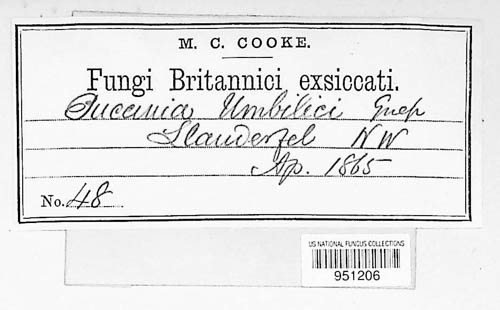 M. C. COOKE.
Fungi Britannici exsiccati.
Puccinia Umbilici Guep
Llanderfel NW
Ap. 1865
No. 48
US NATIONAL FUNGUS COLLECTIONS
951206